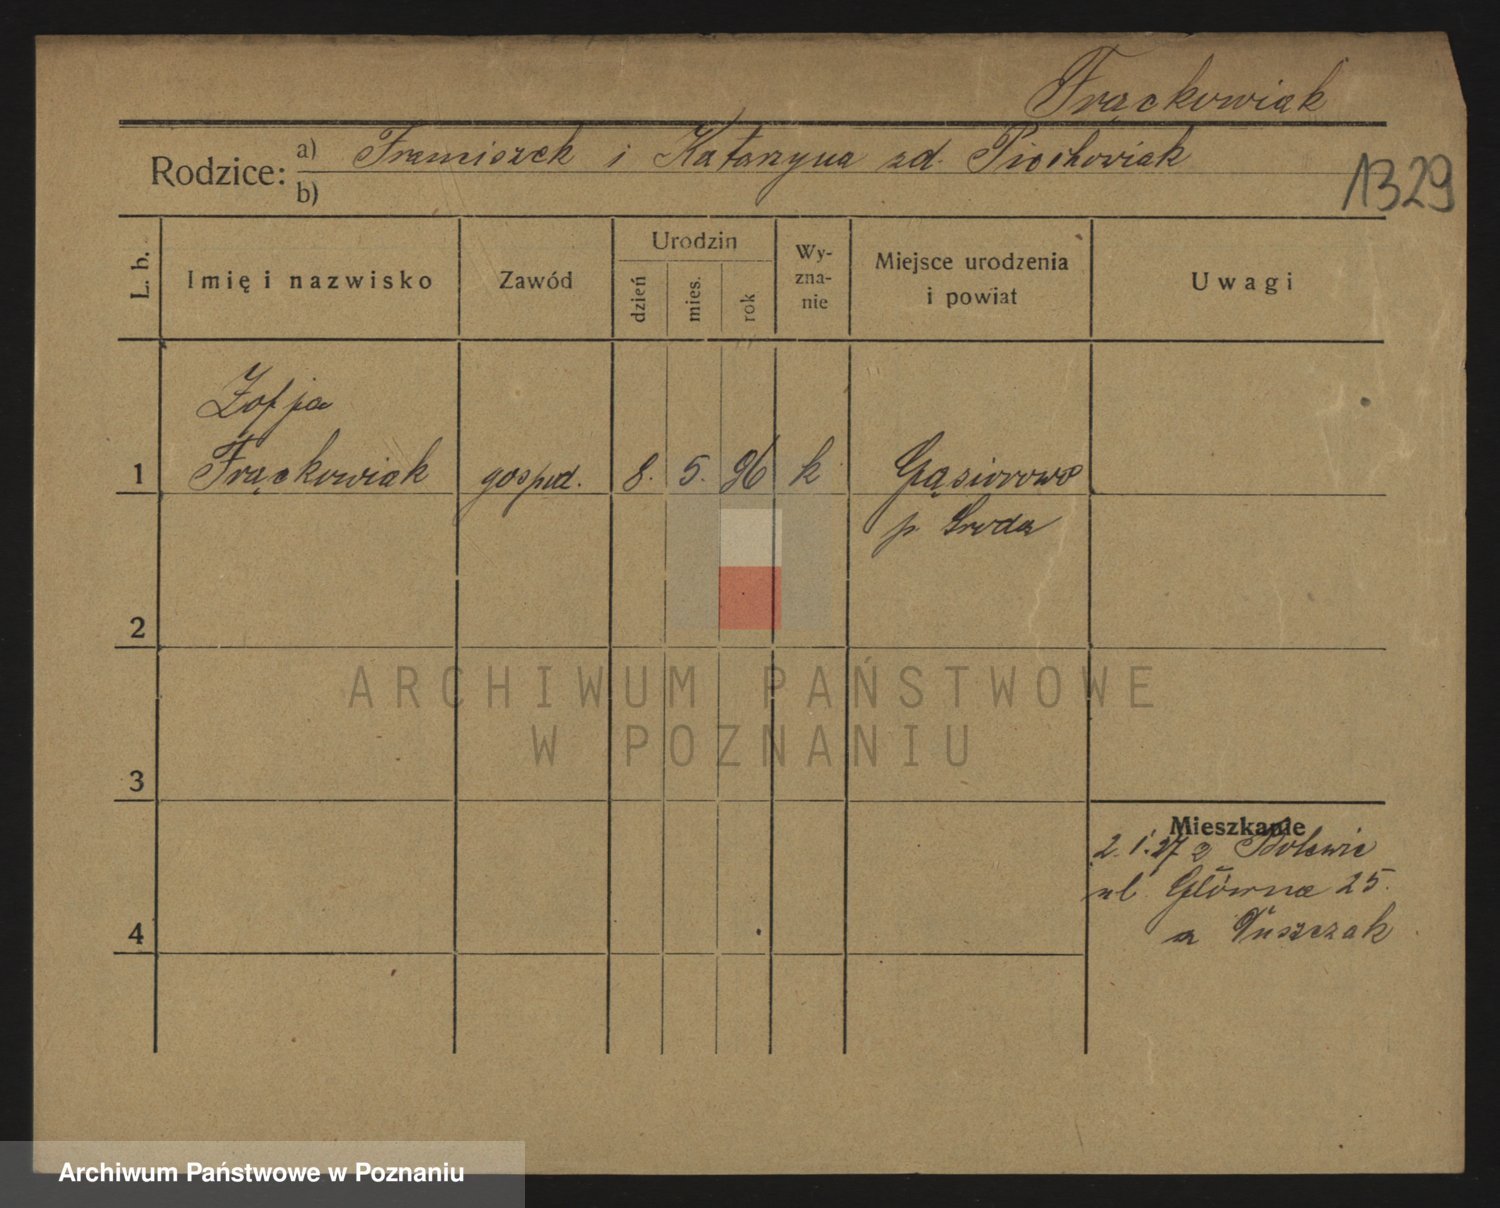 Frąckowiak
Rodzice: a) Franciszek i Katarzyna zd. Piechowiak
b)
1329
L. b.
Imię i nazwisko
Zawód
Urodzin
dzień
mies.
rok
Wy-
zna-
nie
Miejsce urodzenia
i powiat
Uwagi
Zofja
1 Frąckowiak gospod. 8. 5. 96 k Gąsiorowo
p. Środa
2
ARCHIWUM PAŃSTWOWE
W POZNANIU
3
Mieszkanie
2. 1. 27 z
ul. Główna 25.
4
Archiwum Państwowe w Poznaniu